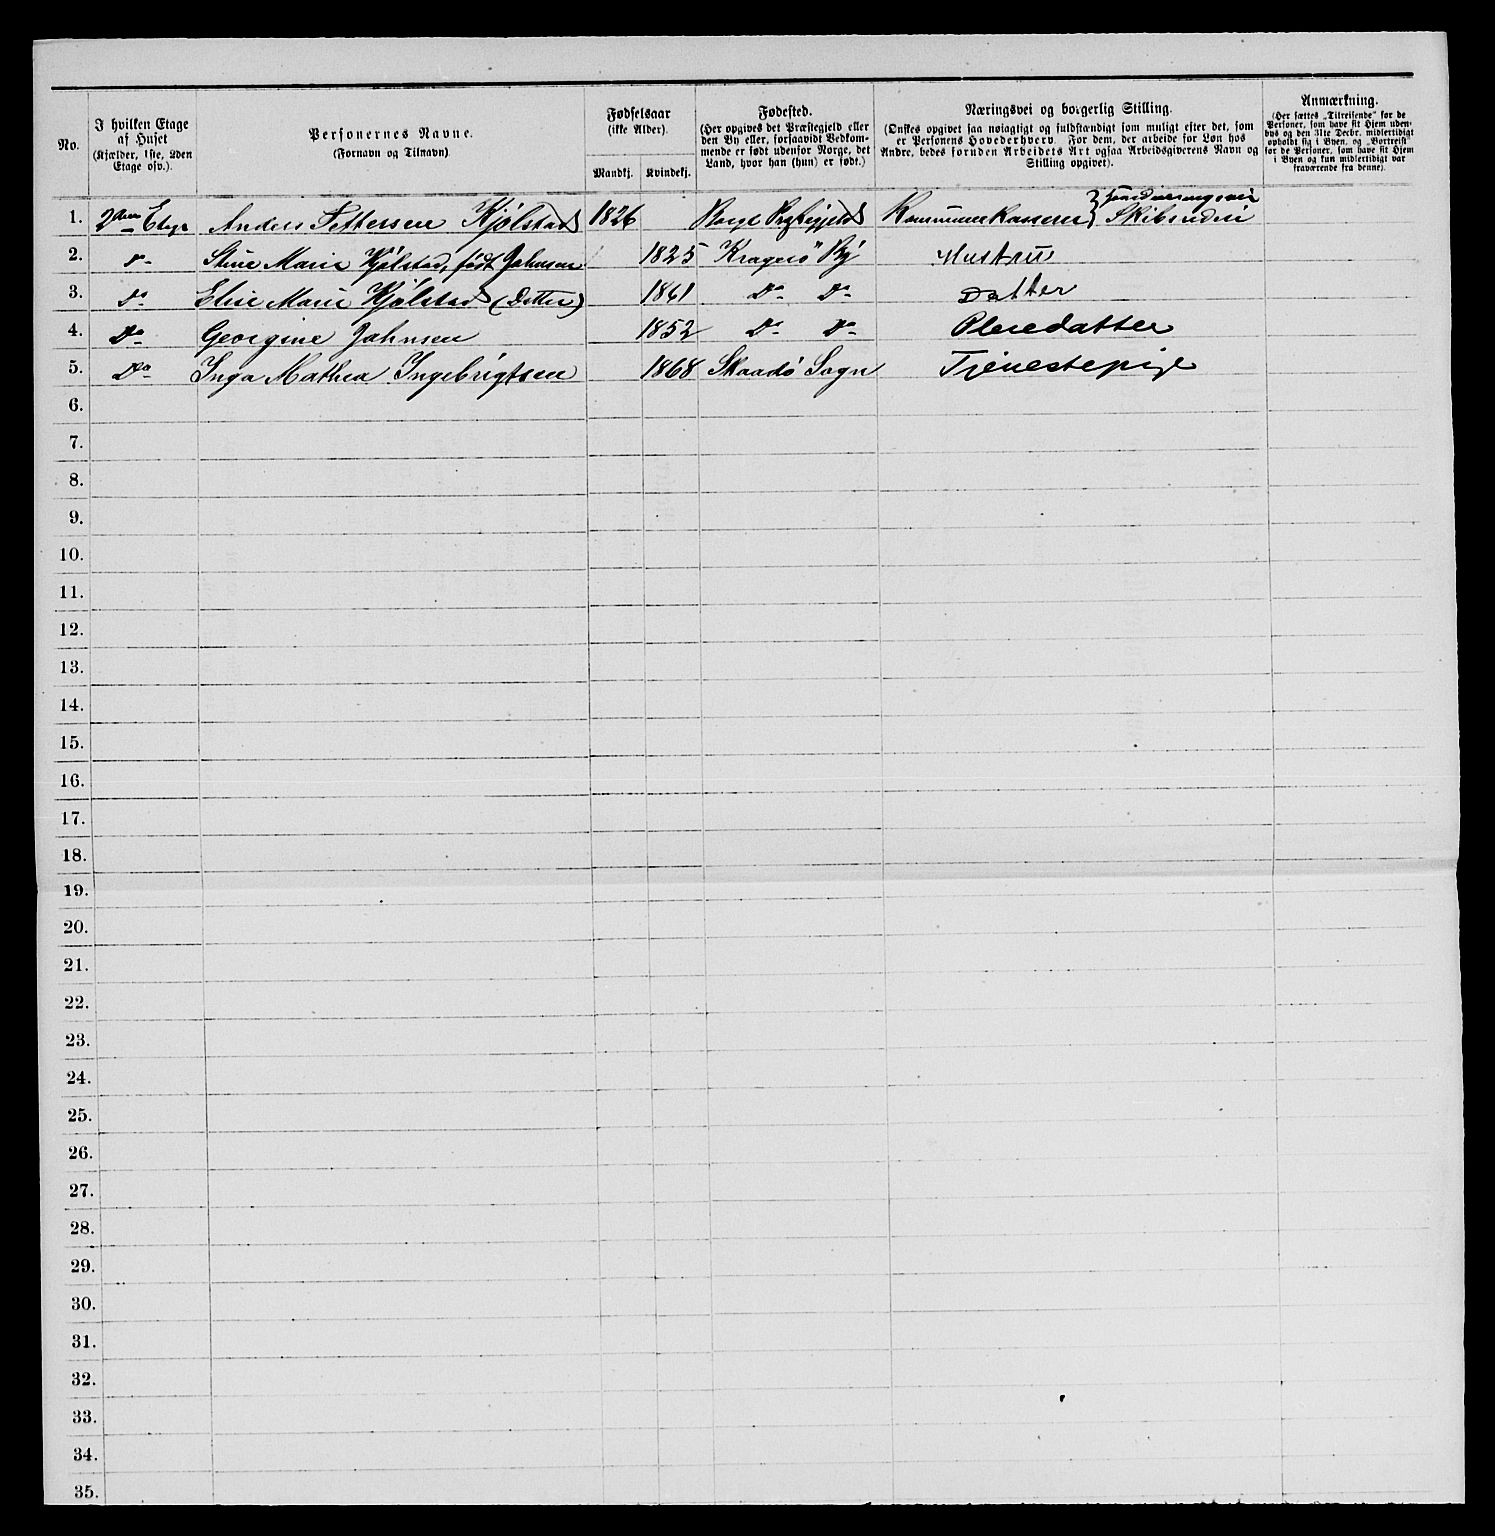 No.
I hvilken Etage
af Huset
(Kjælder, 1ste, 2den
Etage osv.).
Personernes Navne.
(Fornavn og Tilnavn)
Fødselsaar
(ikke Alder).
Mandkj. Kvindekj.
Fødested.
(Her opgives det Præstegjeld eller
den By eller, forsaavidt Vedkom-
mende er født udenfor Norge, det
Land, hvor han (hun) er født.)
Næringsvei og borgerlig Stilling.
(Ønskes opgivet saa nøiagtigt og fuldstændigt som muligt efter det, som
er Personens Hovederhverv. For dem, der arbeide for Løn hos
Andre, bedes foruden Arbeidets Art ogsaa Arbeidsgiverens Navn og
Stilling opgivet).
Anmærkning.
(Her sættes „Tilreisende“ for de
Personer, som have sit Hjem uden-
bys og den 31te Decbr. midlertidigt
opholdt sig i Byen, og „Bortreist“
for de Personer, som have sit Hjem
i Byen og kun midlertidigt var
fraværende fra denne).
1. 2den Etage Anders Pettersen Kjølstad 1826 Borge Kommunekasserer
2. Do Stine Marie Kjølstad, født Jahnsen 1825 Kragerö By Hustru
3. Do Elise Marie Kjølstad (Datter) 1861 Do Do Datter
4. Do Georgine Jahnsen 1852 Do Do Pleiedatter
5. Do Inga Mathea Ingebrigtsen 1868 Skaadö Sogn Tjenestepige
6.
7.
8.
9.
10.
11.
12.
13.
14.
15.
16.
17.
18.
19.
20.
21.
22.
23.
24.
25.
26.
27.
28.
29.
30.
31.
32.
33.
34.
35.